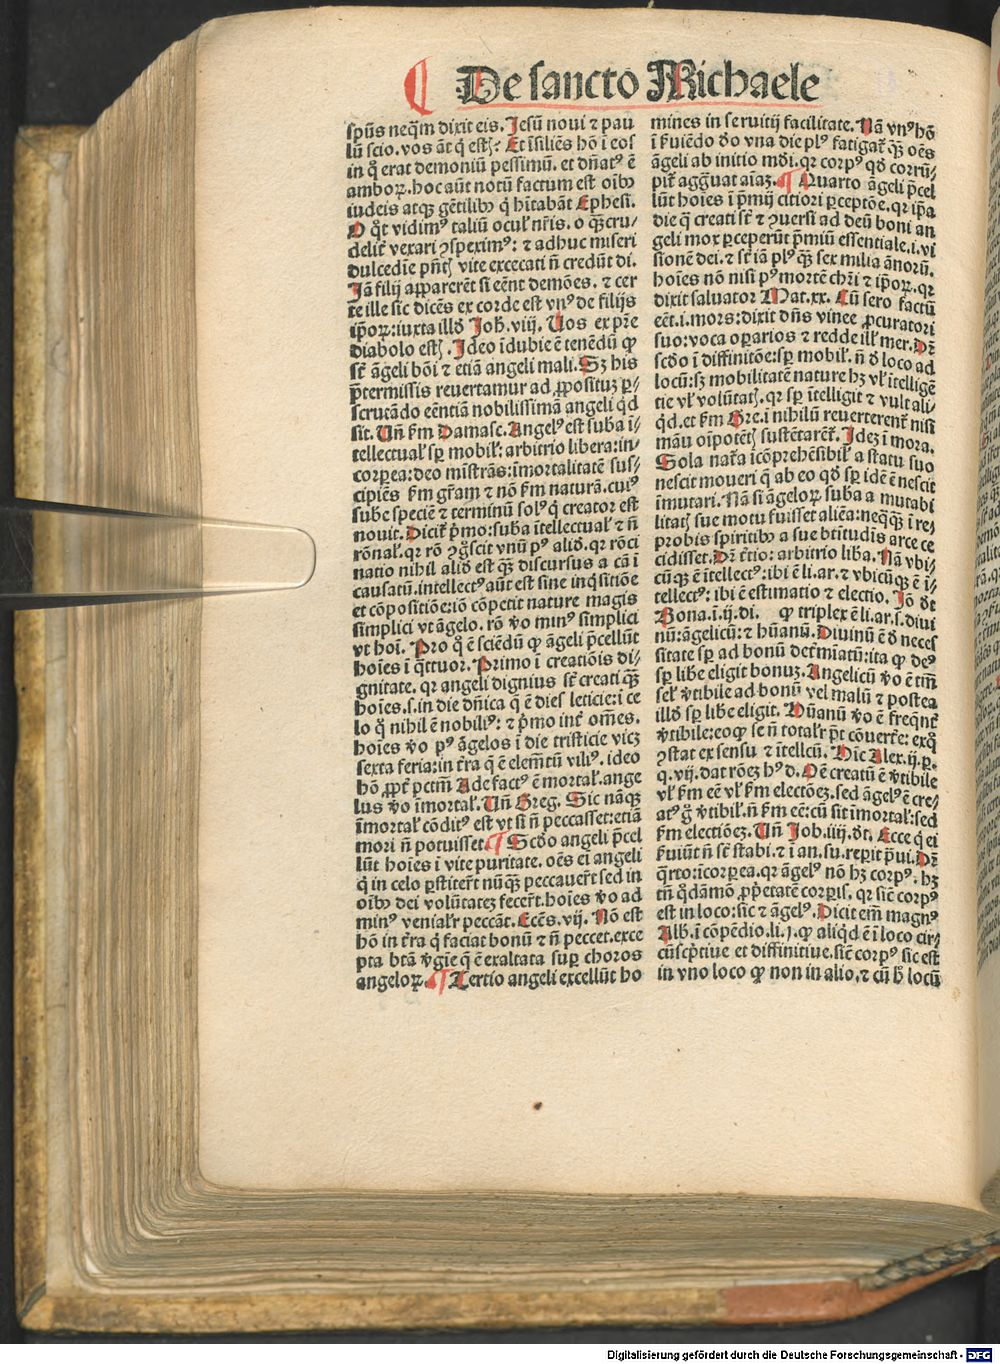 De sancto Michaele
spūs neq̄m dixit eis. Jesū noui ⁊ pau
lū scio. vos āt q̄ estꝭ? Et īsiliēs hō ī eos
in q̊ erat demoniū pessimū. et dn̄atꝰ ē
amboꝝ. hoc aūt notū factum est oībꝰ
iudeis atqꝫ gētilibꝰ q̄ hītabāt Ephesi.
O q̊t vidimꝰ taliū oculꝭ nr̄is. o q̄ꝫ cru-
delit᷑ vexari ꝯspeximꝰ: ⁊ adhuc miseri
dulcedīe pn̄tꝭ vite excecati n̄ credūt di.
Jā filij apparerēt si eēnt demōes. ⁊ cer
te ille sic dicēs ex corde est vnꝰ de filijs
ip̄oꝝ: iuxta illd̄ Joh. viij. Uos ex pr̄e
diabolo estꝭ. Ideo īdubie ē tenēdū ꝙ
st̄ āgeli bōi ⁊ etiā angeli mali. Sꝫ his
p̄termissis reuertamur ad ꝓposituꝫ ꝑ-
scrutādo eēntiā nobilissimā angeli qd̄
sit. Uñ ẜm Damasc. Angelꝰ est suba ī-
tellectualꝭ sꝑ mobilꝭ: arbitrio libera: in-
corꝑea: deo mīstrās: īmortalitatē sus-
cipiēs ẜm gr̄am ⁊ nō ẜm naturā. cuiꝰ
sube speciē ⁊ terminū solꝰ q̄ creator est
nouit. Dicit᷑ p̄mo: suba ītellectualꝭ ⁊ n̄
rōnalꝭ. qꝛ rō ꝯgscit vnū pꝰ aliđ. qꝛ rōci
natio nihil aliđ est q̄ꝫ discursus a cā ī
causatū. intellectꝰ aūt est sine inq̄sitiōe
et cōpositiōe: iō cōpetit nature magis
simplici vt āgelo. rō ꝟo minꝰ simplici
vt hoī. Pro q̊ ē sciēdū ꝙ āgeli p̄cellūt
hoīes ī q̄ttuor. Primo ī creatiōis di-
gnitate. qꝛ angeli dignius st̄ creati q̄ꝫ
hoīes. s. in die dn̄ica q̄ ē dieſ leticie: ī ce
lo q̊ nihil ē nobiliꝰ: ⁊ p̄mo int̄ om̄es.
hoīes ꝟo pꝰ āgelos ī die tristicie vicꝫ
sexta feria: in t̄ra q̄ ē elem̄tū viliꝰ. ideo
hō ꝓpt̄ pctm̄ Ade factꝰ ē mortalꝭ. ange
lus ꝟo īmortalꝭ. Uñ Greg. Sic nāqꝫ
īmortalꝭ cōditꝰ est vt si n̄ peccasset: etiā
mori n̄ potuisset. ¶ Scd̄o angeli p̄cel
lūt hoīes ī vite puritate. oēs ei angeli
q̄ in celo ꝑstiter̄t nūq̄ꝫ peccauer̄t sed in
oībꝰ dei volūtateꝫ fecer̄t. hoīes ꝟo ad
minꝰ venialr̄ peccāt. Ecēs. vij. Nō est
hō in t̄ra q̄ faciat bonū ⁊ n̄ peccet. exce
pta btā ꝟgīe q̄ ē exaltata suꝑ choros
angeloꝝ. ¶ Tertio angeli excellūt ho
mines in seruitij facilitate. Nā vnꝰ hō
ī ẜuiēdo do vna die plꝰ fatigat᷑ q̄ꝫ oēs
āgeli ab initio mōi. qꝛ corpꝰ qđ corrū-
pit᷑ agg̊uat aīaꝫ. ¶ Quarto āgeli p̄cel
lūt hoīes ī p̄mij citiori ꝑceptōe. qꝛ ip̄a
die q̄ creati st̄ ⁊ ꝯuersi ad deū boni an
geli mox ꝑceperūt p̄miū essentiale. i. vi
sionē dei. ⁊ st̄ iā plꝰ q̄ꝫ sex milia ānorū.
hoīes nō nisi pꝰ mortē chr̄i ⁊ ip̄oꝝ. qꝛ
dixit saluator Mat. xx. Cū sero factū
eēt. i. mors: dixit dn̄s vinee ꝓcuratori
suo: voca oꝑarios ⁊ redde illꝭ mer. Dꝛ̄
scd̄o ī diffinitōe: sꝑ mobilꝭ. n̄ d̄ loco ad
locū: sꝫ mobilitatē nature hꝫ vlꝭ ītelligē
tie vlꝭ volūtatꝭ. qꝛ sꝑ ītelligit ⁊ vult ali-
qd̄. et ẜm Gre. ī nihilū reuerterent᷑ nisi
manu oīpotētꝭ sustētarēt᷑. Ideꝫ ī mora.
Sola nat᷑a īcōprehēsibilꝭ a statu suo
nescit moueri q̄ ab eo qđ sꝑ idē ē nescit
īmutari. Nā si āgeloꝝ suba a mutabi
litatꝭ sue motu fuisset aliēa: neqꝗꝫ ī re-
probis spiritibꝰ a sue btitudīs arce ce
cidisset. Dꝛ̄ t̄tio: arbitrio liba. Nā vbi-
cūqꝫ ē ītellectꝰ: ibi ē li. ar. ⁊ vbicūqꝫ ē ī-
tellectꝰ: ibi ē estimatio ⁊ electio. Iō d̄t
Bona. i. ij. di. ꝙ triplex ē li. ar. s. diui
nū: āgelicū: ⁊ hūanū. Diuinū ē d̄ neces
sitate sꝑ ad bonū det̄mīatū: ita ꝙ deꝰ
sꝑ libe eligit bonuꝫ. Angelicū ꝟo ē tm̄
sel ꝟtibile ad bonū vel malū ⁊ postea
illđ sꝑ libe eligit. Hūanū ꝟo ē freq̄nt᷑
ꝟtibile: eo ꝙ se n̄ totalr̄ p̄t cōuert̄e: ex q̊
ꝯstat ex sensu ⁊ ītellcū. Hīc Alex. ij. p.
q. vij. dat rōeꝫ hꝰ d. Oē creatū ē ꝟtibile
vlꝭ ẜm eē vlꝭ ẜm electōeꝫ. sed āgelꝰ ē cre-
atꝰ g̊ ꝟtibilꝭ. n̄ ẜm eē: cū sit īmortalꝭ: sed
ẜm electiōeꝫ. Uñ Job. iiij. d̄t. Ecce q̄ ei
ẜuiūt n̄ st̄ stabi. ⁊ ī an. su. reꝑit p̄ui. Dꝛ̄
q̄rto: īcorꝑea. qꝛ āgelꝰ nō hꝫ corpꝰ. hꝫ
tn̄ q̄dāmō ꝓp̄etatē corꝑis. qꝛ siē corpꝰ
est in loco: sic ⁊ āgelꝰ. Dicit em̄ magnꝰ
Alb. ī cōpēdio. li. ȷ. ꝙ aliqd ē ī loco cir-
cūscp̄tiue et diffinitiue. siē corpꝰ sic est
in vno loco ꝙ non in alio. ⁊ cū b̄ locū
Digitalisierung gefördert durch die Deutsche Forschungsgemeinschaft - DFG